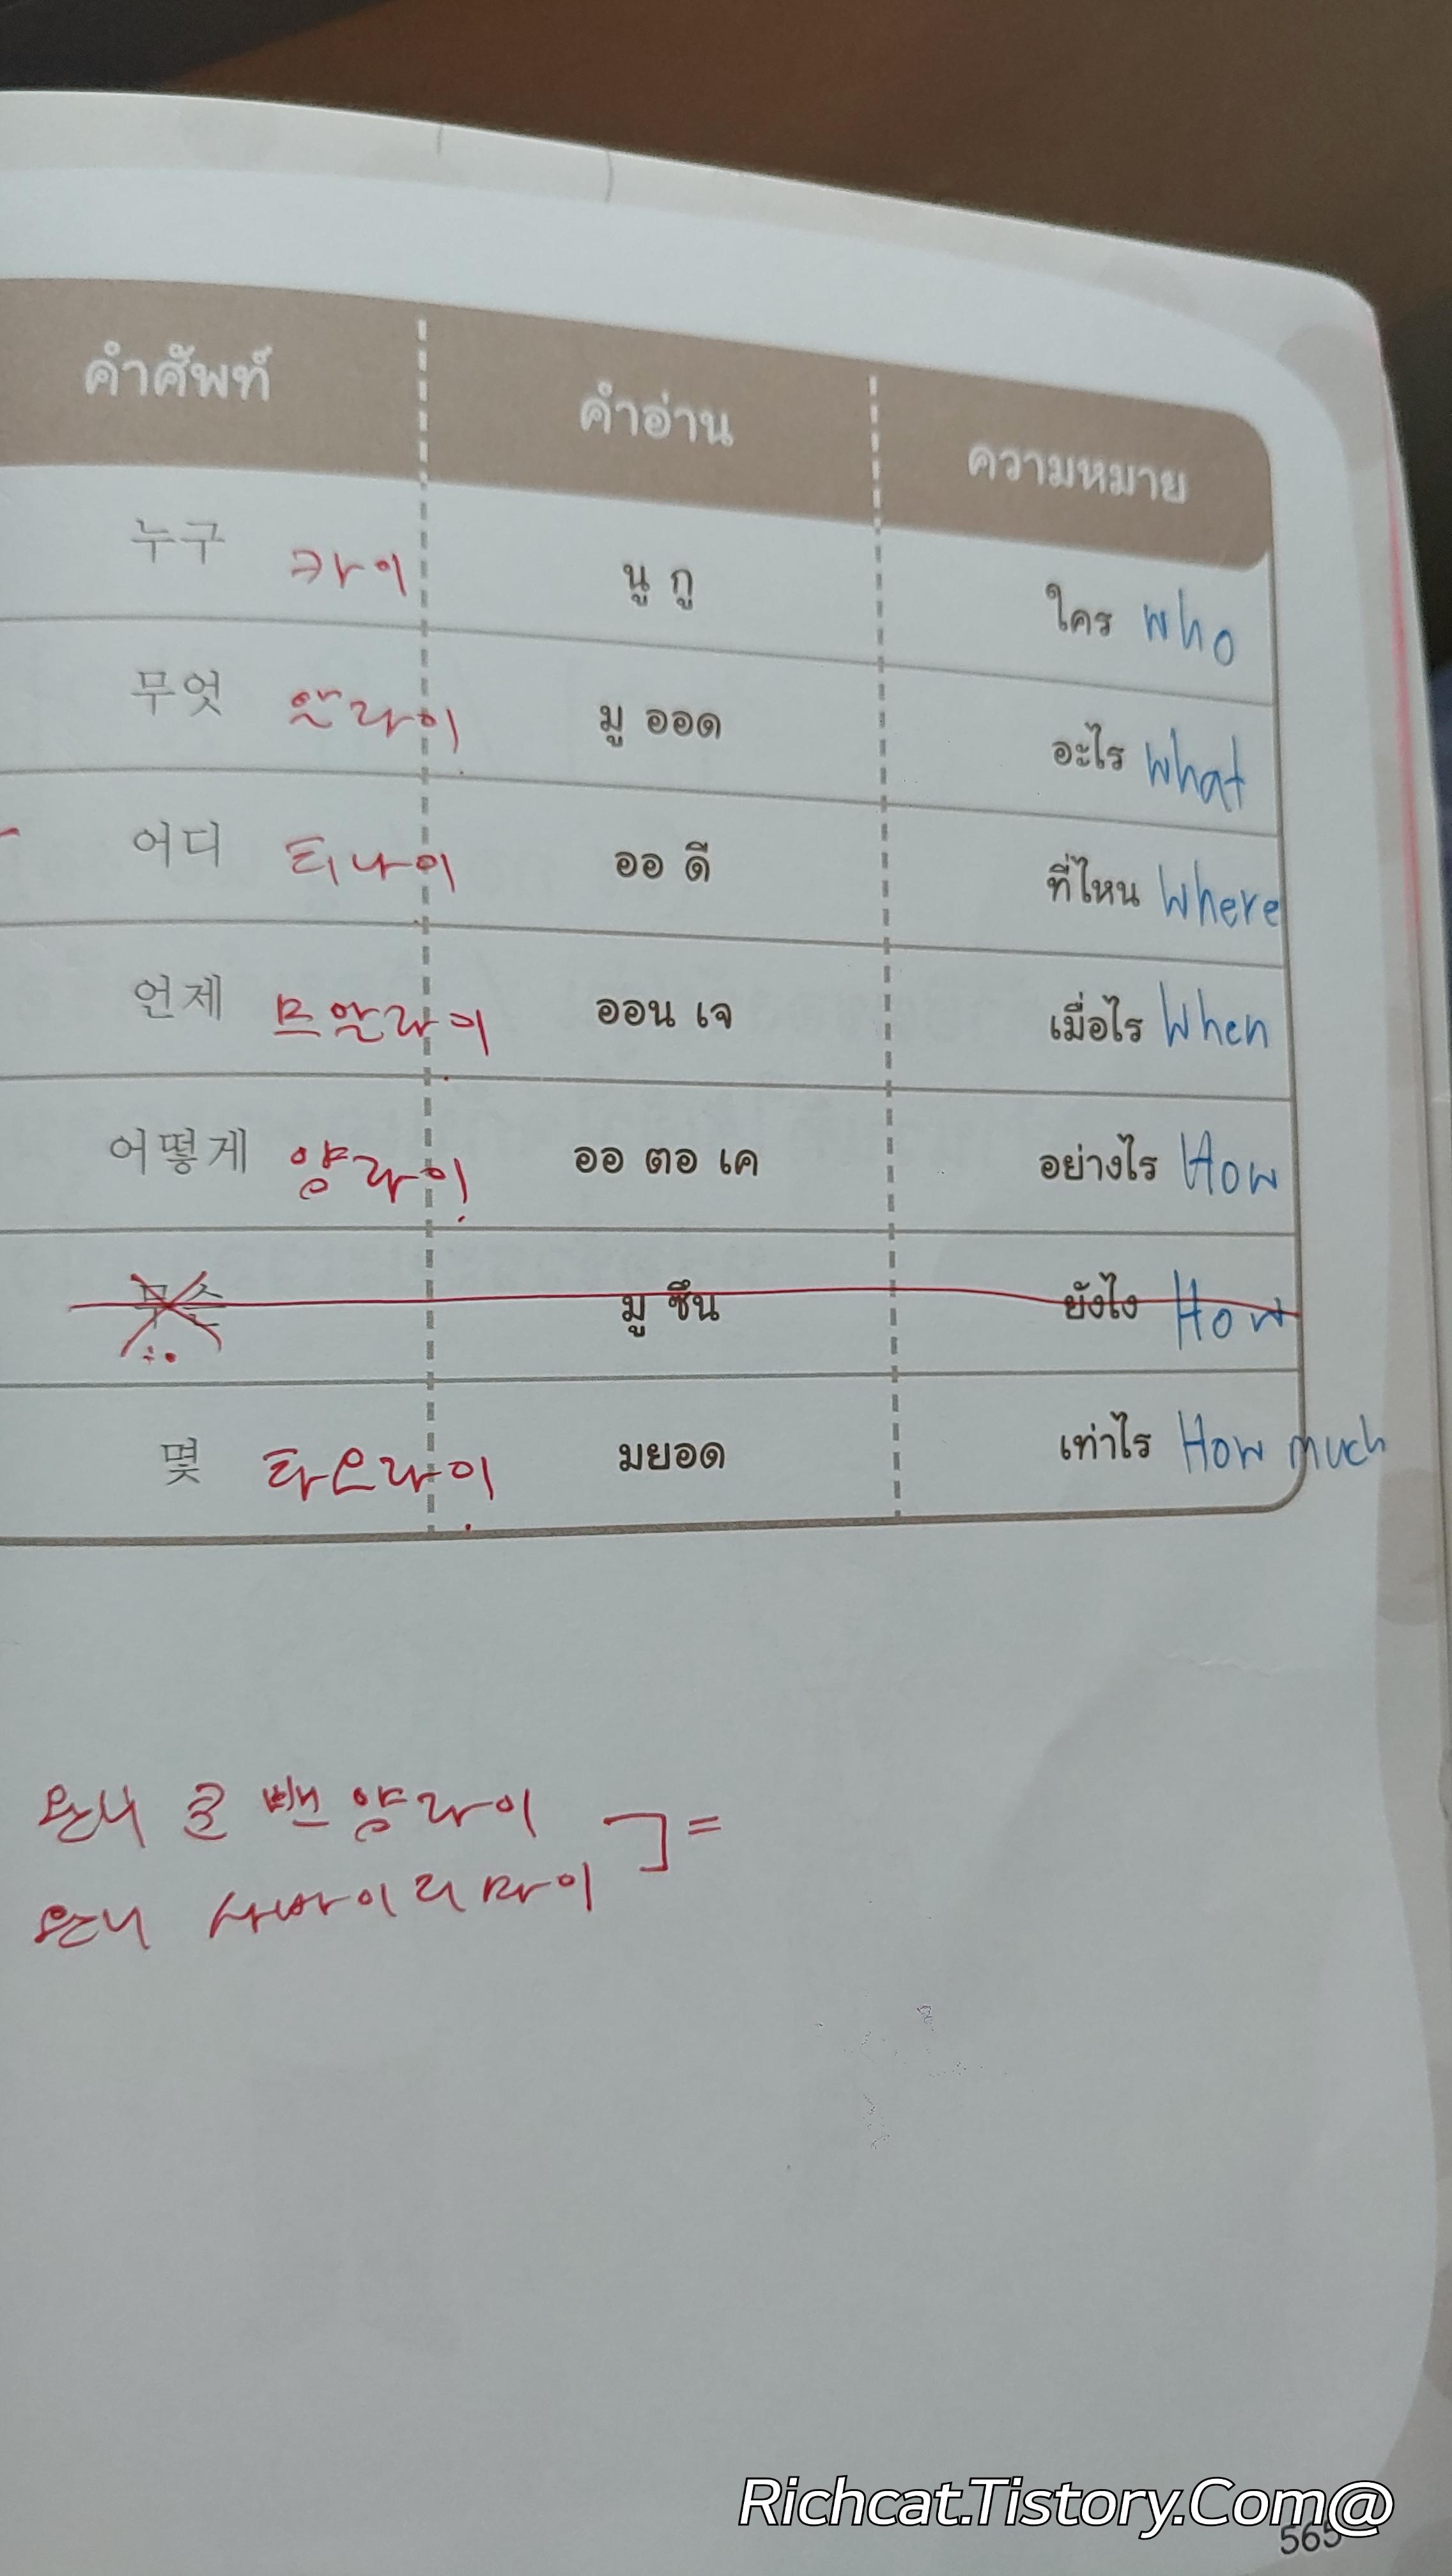 คำศัพท์ คำอ่าน ความหมาย
누구 크아이 นู กู ใคร who
무엇 알라이 มู ออด อะไร what
어디 티나이 ออ ดี ที่ไหน where
언제 므알라이 ออน เจ เมื่อไร When
어떻게 양라이 ออ ตอ เค อย่างไร How
무슨 มู ซึน ยังไง How
몇 타오라이 มยอด เท่าไร How much
완니 쿤 뺀 양라이 ] =
완니 사바이 디 마이
Richcat.Tistory.Com@
565